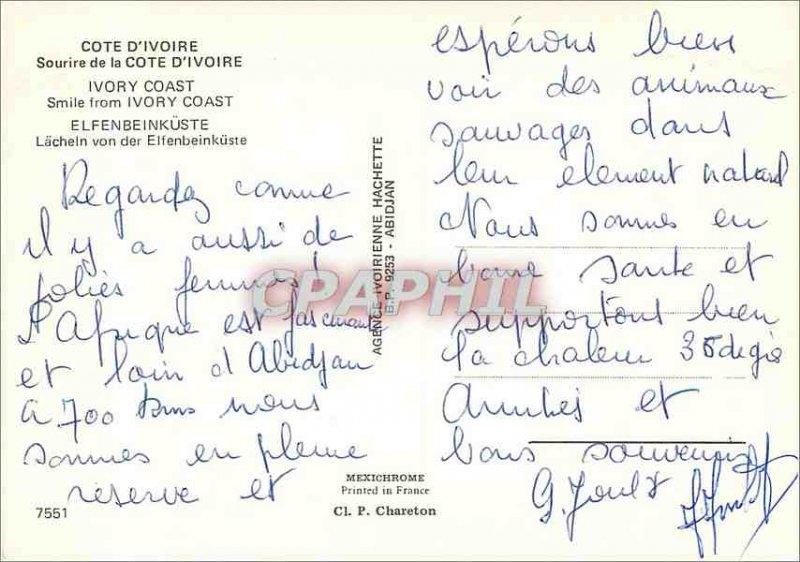 COTE D'IVOIRE
Sourire de la COTE D'IVOIRE
IVORY COAST
Smile from IVORY COAST
ELFENBEINKÜSTE
Lächeln von der Elfenbeinküste
Regardez comme
il y a aussi de
jolies femmes!
l'Afrique est fascinante
et loin d'Abidjan
à 700 kms nous
sommes en pleine
réserve et
espérons bien
voir des animaux
sauvages dans
leur element naturel
Nous sommes en
bonne sante et
supportons bien
la chaleur 35 degrés
Amitiés et
bons souvenirs
G.
AGENCE IVOIRIENNE HACHETTE
B.P. 9253 - ABIDJAN
CPAPHIL
MEXICHROME
Printed in France
Cl. P. Chareton
7551